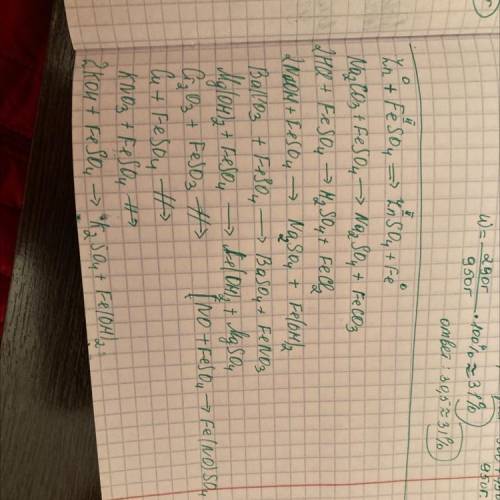 ω = 290г / 950г · 100% ≈ 31%
ответ: 30,5 ≈ 31%
0 II II 0
Zn + FeSO4 ⇒ ZnSO4 + Fe
Na2CO3 + FeSO4 → Na2SO4 + FeCO3
2HCl + FeSO4 → H2SO4 + FeCl2
2NaOH + FeSO4 → Na2SO4 + Fe(OH)2
BaNO3 + FeSO4 → BaSO4 + FeNO3
Mg(OH)2 + FeSO4 → Fe(OH)2 + MgSO4
Cr2O3 + FeSO3 -//->
Cu + FeSO4 -//->
[NO + FeSO4 → Fe(NO)SO4
KNO3 + FeSO4 -//->
2KOH + FeSO4 → K2SO4 + Fe(OH)2